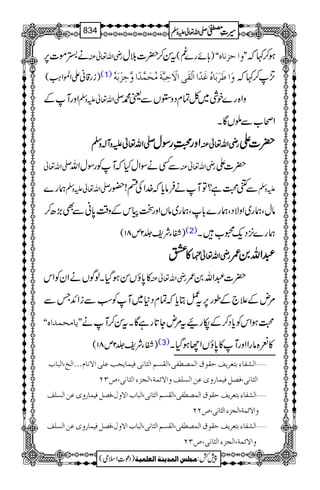 سیرتِ مصطفی صلی اللہ تعالیٰ علیہ وسلم 834
ہو کر کہا کہ "وا حزناہ" (ہائے رے غم) یہ سن کر حضرت بلال رضی اللہ تعالیٰ عنہ نے بستر موت پر
تڑپ کر کہا کہ وَا طَرَبَاهُ غَدًا اَلْقَی الْاَحِبَّةَ مُحَمَّدًا وَّ حِزْبَهٗ (1) (زرقانی علی المواہب)
واہ رے خوشی میں کل تمام دوستوں سے یعنی محمد صلی اللہ تعالیٰ علیہ وسلم اور آپ کے
اصحاب سے ملوں گا۔
حضرت علی رضی اللہ تعالیٰ عنہ اور محبتِ رسول صلی اللہ تعالیٰ علیہ والہ وسلم
حضرت علی رضی اللہ تعالیٰ عنہ سے کسی نے سوال کیا کہ آپ کو رسول اللہ صلی اللہ تعالیٰ
علیہ وسلم سے کتنی محبت ہے؟ تو آپ نے فرمایا کہ خدا کی قسم! حضور صلی اللہ تعالیٰ علیہ وسلم ہمارے
مال، ہماری اولاد، ہمارے باپ، ہماری ماں اور سخت پیاس کے وقت پانی سے بھی بڑھ کر
ہمارے نزدیک محبوب ہیں۔ (2) (شفاء شریف جلد۲ ص۱۸)
عبداللہ بن عمر رضی اللہ تعالیٰ عنہما کا عشق
حضرت عبداللہ بن عمر رضی اللہ تعالیٰ عنہ کا پاؤں سن ہو گیا۔ لوگوں نے ان کو اس
مرض کے علاج کے طور پر یہ عمل بتایا کہ تمام دنیا میں آپ کو سب سے زائد جس سے
محبت ہو اس کو یاد کر کے پکاریئے یہ مرض جاتا رہے گا۔ یہ سن کر آپ نے "یامحمداہ"
کا نعرہ مارا اور آپ کا پاؤں اچھا ہو گیا۔ (3) (شفاء شریف جلد۲ ص۱۸)
......الشفاء بتعریف حقوق المصطفی،القسم الثانی فیمایجب علی الانام...الخ،الباب
الثانی،فصل فیماروی عن السلف والائمة،الجزء الثانی،ص۲۳
......الشفاء بتعریف حقوق المصطفی،القسم الثانی،الباب الاول،فصل فیماروی عن السلف
والائمة،الجزء الثانی،ص۲۲
......الشفاء بتعریف حقوق المصطفی،القسم الثانی،الباب الاول،فصل فیماروی عن السلف
والائمة،الجزء الثانی،ص۲۳
پیش کش: مجلس المدینة العلمیة (دعوتِ اسلامی)